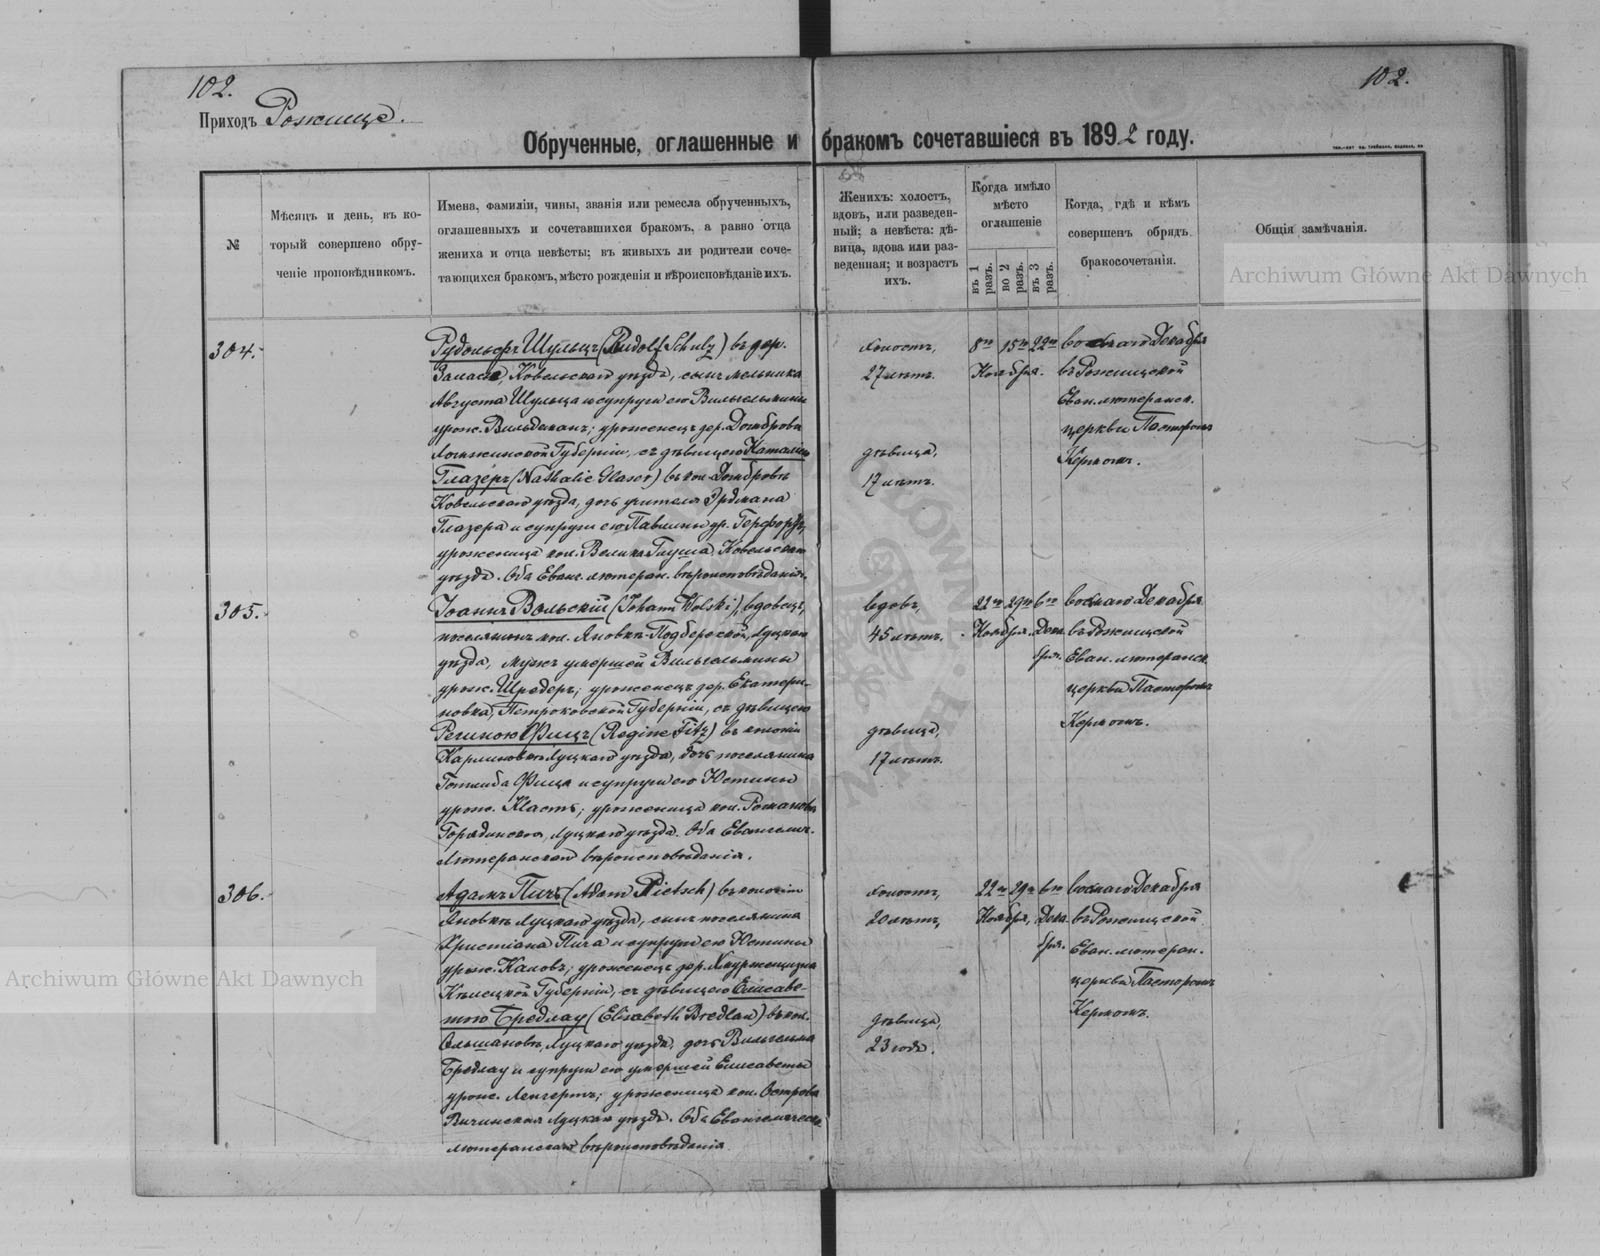 102.
102.
Приходъ Рожище.
Обрученные, оглашенные и бракомъ сочетавшіеся въ 1892 году.
№
Мѣсяцъ и день, въ ко-
торый совершено обру-
ченіе проповѣдникомъ.
Имена, фамиліи, чины, званія или ремесла обрученныхъ,
оглашенныхъ и сочетавшихся бракомъ, а равно отца
жениха и отца невѣсты; въ живыхъ ли родители соче-
тающихся бракомъ, мѣсто рожденія и вѣроисповѣданіе ихъ.
Женихъ: холостъ,
вдовъ, или разведен-
ный; а невѣста: дѣ-
вица, вдова или раз-
веденная; и возрастъ
ихъ.
Когда имѣло
мѣсто
оглашеніе
въ 1 разъ.
во 2 разъ.
въ 3 разъ.
Когда, гдѣ и кѣмъ
совершенъ обрядъ
бракосочетанія.
Общія замѣчанія.
304.
Рудольфъ Шульцъ (Rudolf Schulz) въ дер.
Ковельскаго уѣзда, сынъ мельника
Августа Шульца и супруги его Вильгельмины
урож. ; уроженецъ дер. Домброва
Ломжинской Губерніи, съ дѣвицею Наталіею
Глазеръ (Nathalie Glaser) въ кол. Домбровѣ
Ковельскаго уѣзда, дочь учителя Эрдмана
Глазера и супруги его Павлины ур. Герфортъ,
уроженица кол. Велика Глуша Ковельскаго
уѣзда. Оба Еванг. лютеран. вѣроисповѣданія.
холостъ,
27 лѣтъ.
дѣвица,
17 лѣтъ.
8го 15го 22го
Ноября.
восьмаго Декабря
въ Рожищской
Еван. лютеранск.
церкви Пасторомъ
Кермомъ.
305.
Іоаннъ Вольскій (Johann Wolski), вдовецъ,
поселянинъ кол. Яновка-Подберезкой, Луцкаго
уѣзда, мужъ умершей Вильгельмины
урож. Шредеръ; уроженецъ дер. Екатери-
новка, Петроковской Губерніи, съ дѣвицею
Региною Фицъ (Regine Fitz) въ колоніи
Карлиновкѣ Луцкаго уѣзда, дочь поселянина
Готлиба Фица и супруги его Юстины
урож. Кластъ; уроженица кол. Романовъ
Луцкаго уѣзда. Оба Евангелич.
Лютеранскаго вѣроисповѣданія.
вдовъ,
45 лѣтъ.
дѣвица,
17 лѣтъ.
22го 29го 6го
Ноября. Дека-
бря.
восьмаго Декабря
въ Рожищской
Еван. лютеранск.
церкви Пасторомъ
Кермомъ.
306.
Адамъ Пичъ (Adam Pietsch) въ колоніи
Яновкѣ Луцкаго уѣзда, сынъ поселянина
Христіана Пича и супруги его Юстины
урож. Каловъ; уроженецъ дер.
Кѣлецкой Губерніи, съ дѣвицею Елисаве-
тою Бредлау (Elisabeth Bredlau) въ кол.
Ольшановкѣ, Луцкаго уѣзда, дочь Вильгельма
Бредлау и супруги его умершей Елисаветы
урож. Ленгертъ; уроженица кол. Острова
Луцкаго уѣзда. Оба Евангелическо
лютеранскаго вѣроисповѣданія.
холостъ,
20 лѣтъ,
дѣвица,
23 года.
22го 29го 6го
Ноября, Дека-
бря.
восьмаго Декабря
въ Рожищской
Еван. лютеран.
церкви Пасторомъ
Кермомъ.
Archiwum Główne Akt Dawnych
Archiwum Główne Akt Dawnych